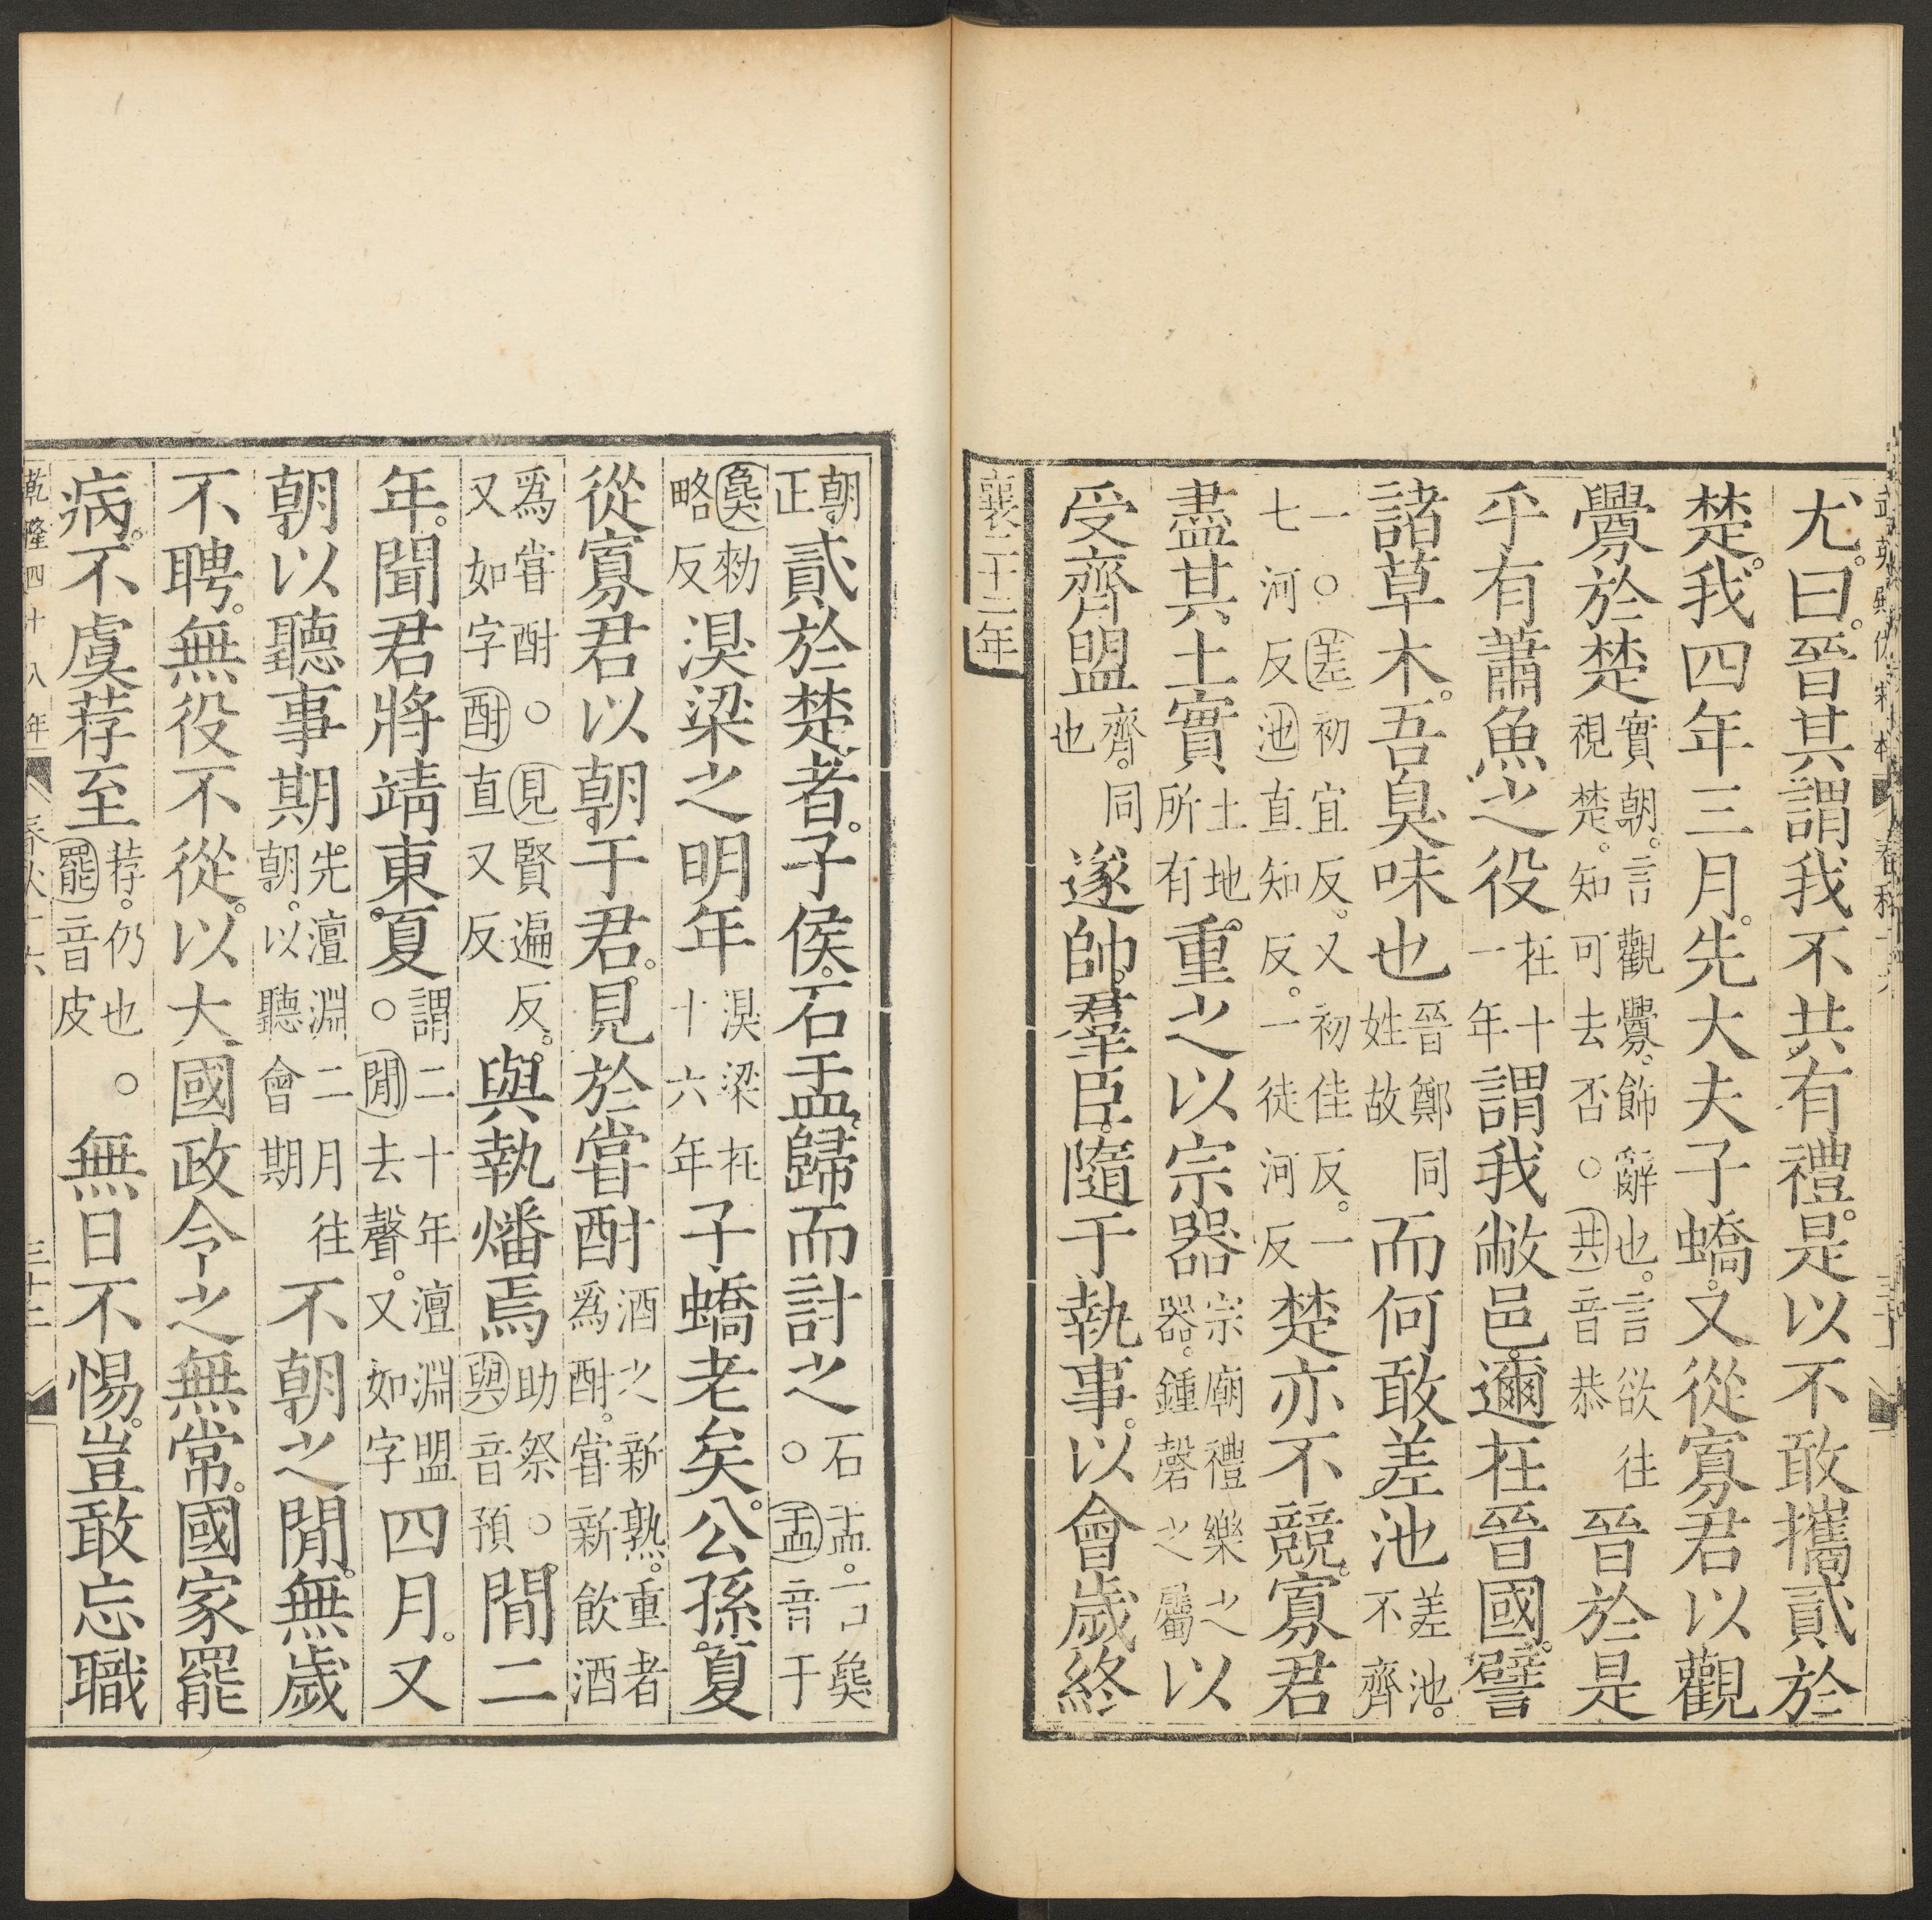 武英殿仿宋本 春秋十六 三十一
尤。曰。晉其謂我不共有禮。是以不敢攜貳於
楚。我四年三月。先大夫子蟜。又從寡君以觀
釁於楚實朝。言觀釁。飾辭也。言欲往視楚。知可去否○共音恭晉於是
乎有蕭魚之役在十一年謂我敝邑。邇在晉國。譬
諸草木。吾臭味也晉鄭同姓故而何敢差池差池。不齊
一○差初宜反。又初佳反。一七河反池直知反。一徒河反楚亦不競。寡君
盡其土實土地所有重之以宗器宗廟禮樂之器。鍾磬之屬以
受齊盟齊。同也遂帥。羣臣。隨于執事。以會歲終
襄二十二年
朝正貳於楚者。子侯。石盂。歸而討之石盂。石㚟○盂音于
㚟勑略反湨梁之明年湨梁在十六年子蟜老矣。公孫夏
從寡君以朝于君。見於嘗酎酒之新熟。重者爲酎。嘗新飲酒
爲嘗酎○見賢遍反。又如字酎直又反與執燔焉助祭○與音預閒二
年。聞君將靖東夏謂二十年澶淵盟○閒去聲。又如字四月。又
朝以聽事期先澶淵二月往朝。以聽會期不朝之閒。無歲
不聘。無役不從。以大國政令之無常。國家罷
病。不虞荐至荐。仍也○罷音皮無日不惕。豈敢忘職
乾隆四十八年 春秋十六 三十二